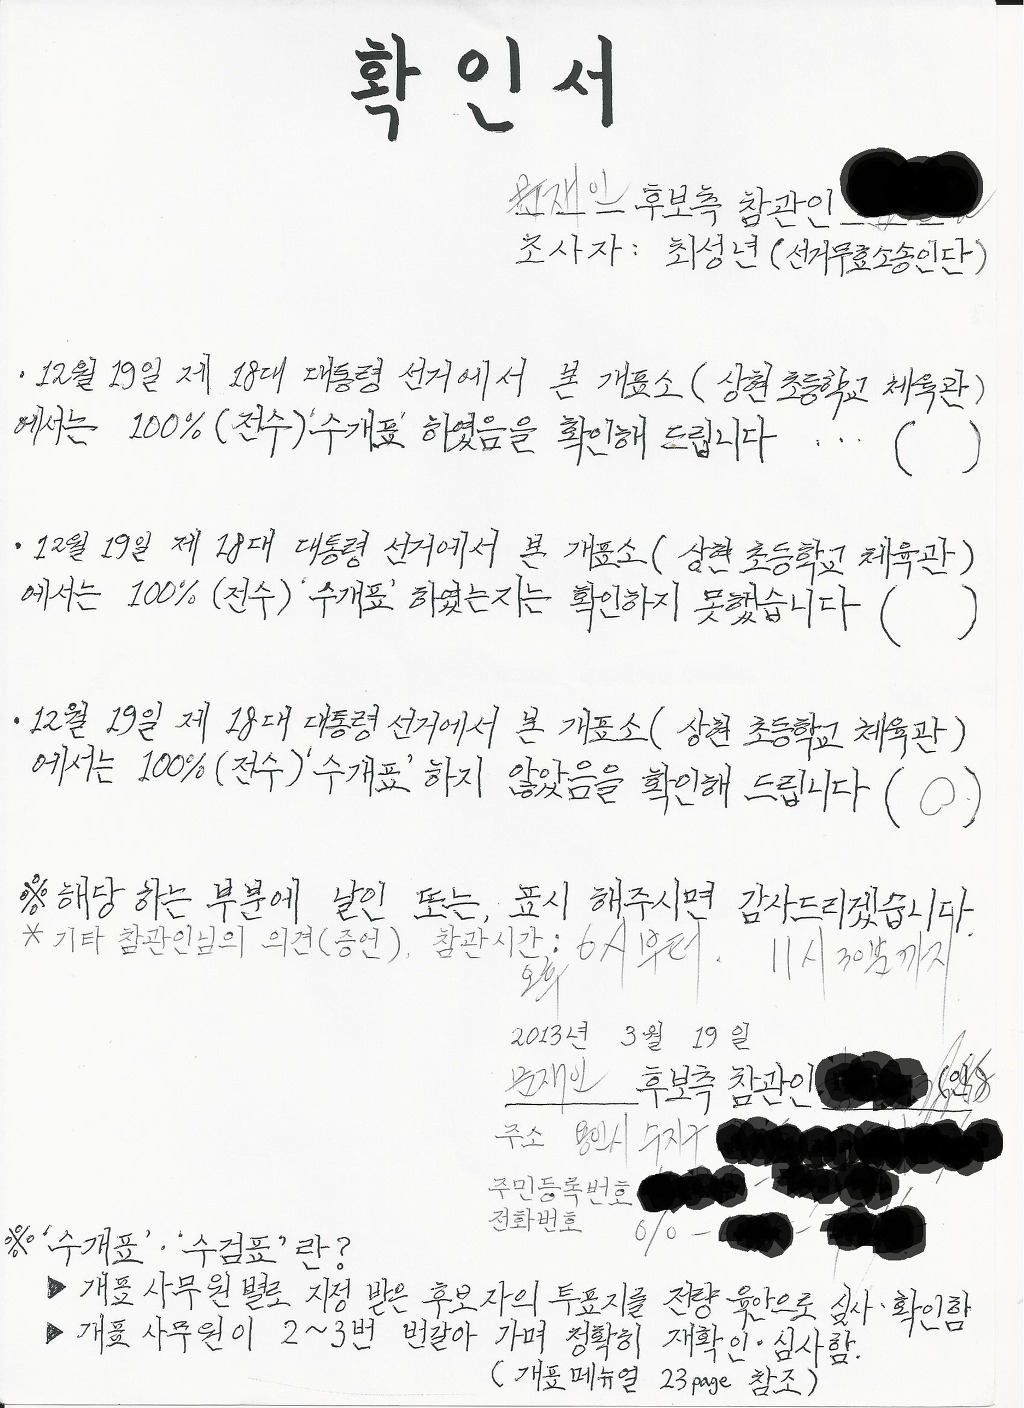 확인서
문재인 후보측 참관인
조사자: 최성년 (선거무효소송인단)
· 12월 19일 제 18대 대통령 선거에서 본 개표소 ( 상현초등학교 체육관)
에서는 100% (전수) '수개표' 하였음을 확인해 드립니다 ... ( )
· 12월 19일 제 18대 대통령 선거에서 본 개표소 ( 상현 초등학교 체육관 )
에서는 100% (전수) '수개표' 하였는지는 확인하지 못했습니다 ( )
· 12월 19일 제 18대 대통령 선거에서 본 개표소 ( 상현 초등학교 체육관 )
에서는 100% (전수) '수개표' 하지 않았음을 확인해 드립니다 ( ○ )
※ 해당 하는 부분에 날인 또는, 표시 해주시면 감사드리겠습니다.
* 기타 참관인님의 의견(증언), 참관시간: 오후 6시부터. 11시 30분까지
2013년 3월 19일
문재인 후보측 참관인 (인)
주소 용인시 수지구
주민등록번호 -
전화번호 010 - -
※ '수개표'·'수검표'란?
▶ 개표 사무원별로 지정 받은 후보자의 투표지를 전량 육안으로 심사·확인함
▶ 개표 사무원이 2~3번 번갈아 가며 정확히 재확인·심사함.
( 개표메뉴얼 23page 참조 )